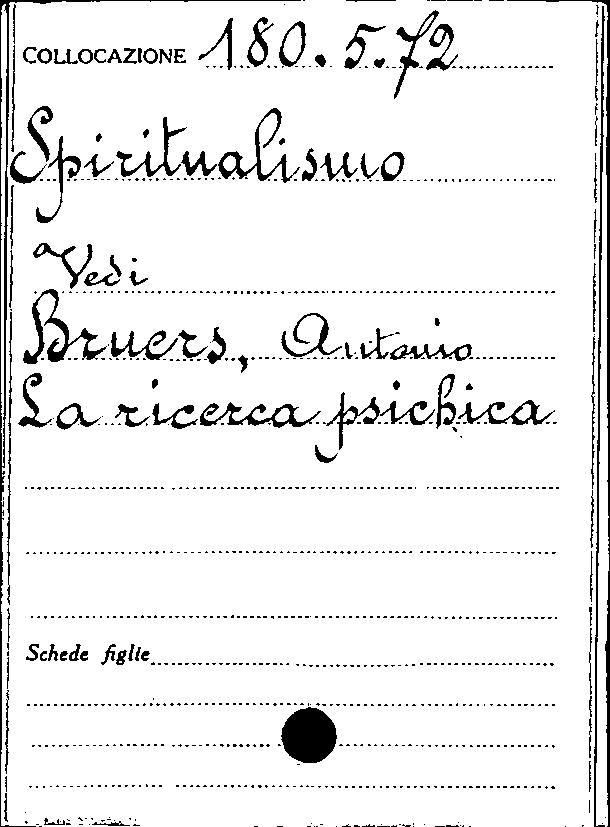 COLLOCAZIONE 180.5.72
Spiritualismo
Vedi
Bruers, Antonio
La ricerca psichica
Schede figlie